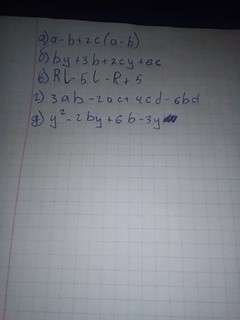 а) a-b+2c(a-b)
б) by+3b+2cy+6c
в) Rl-5l-R+5
г) 3ab-2ac+4cd-6bd
д) y²-2by+6b-3y